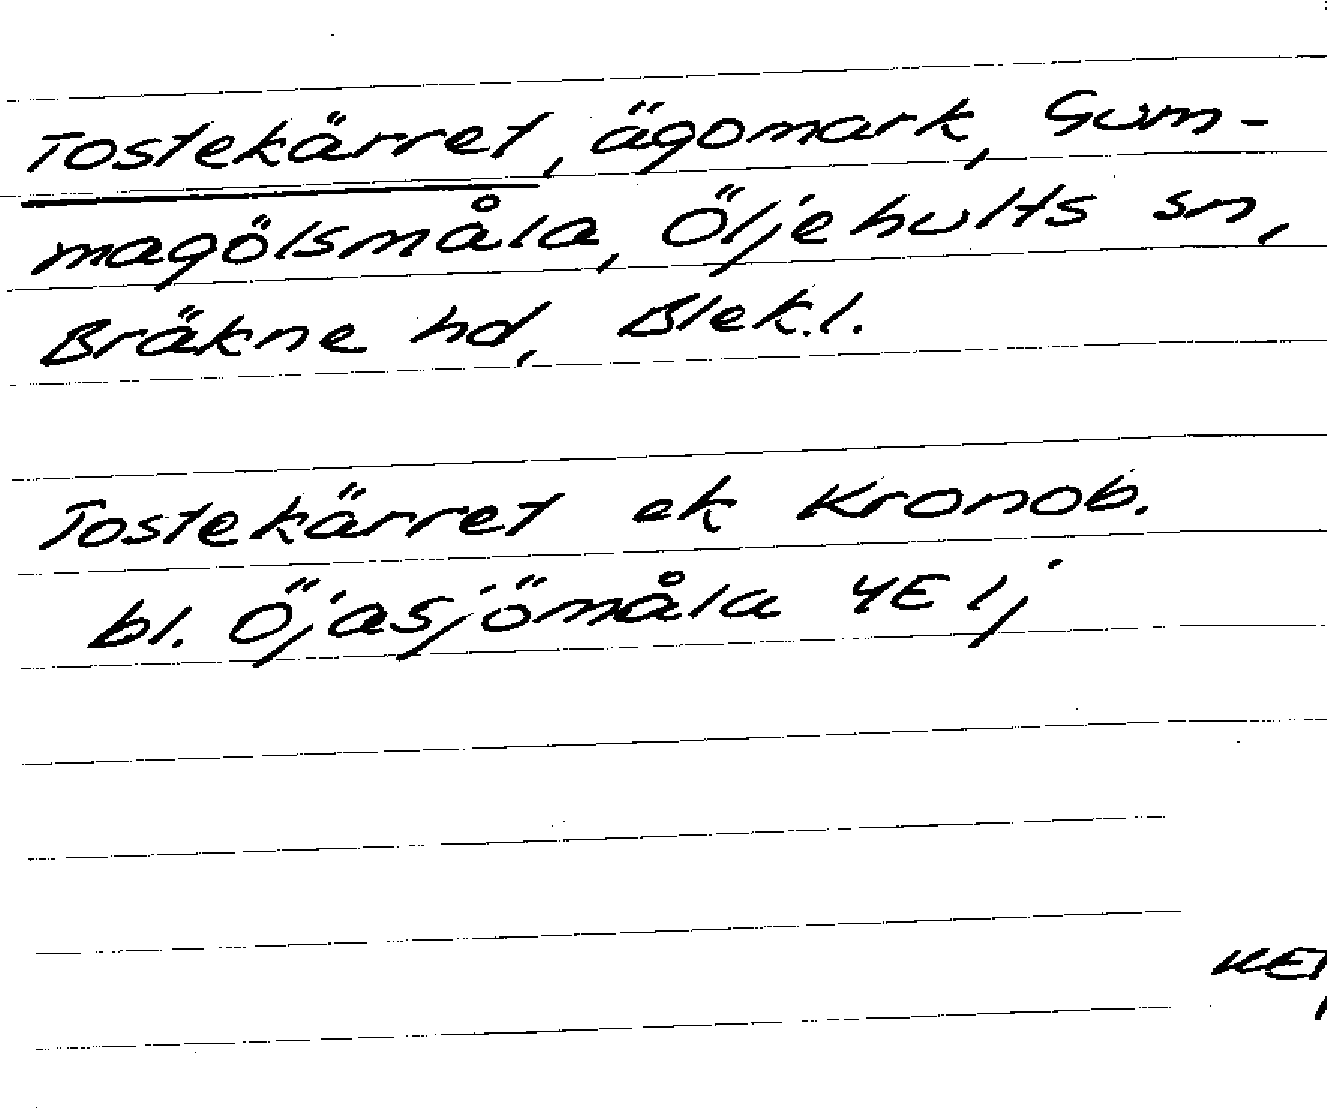 Tostekärret, ägomark, Gum-
magölsmåla, Öljehults sn,
Bräkne hd, Blek.l.
Tostekärret ek Kronob.
bl. Öjasjömåla 4E lj